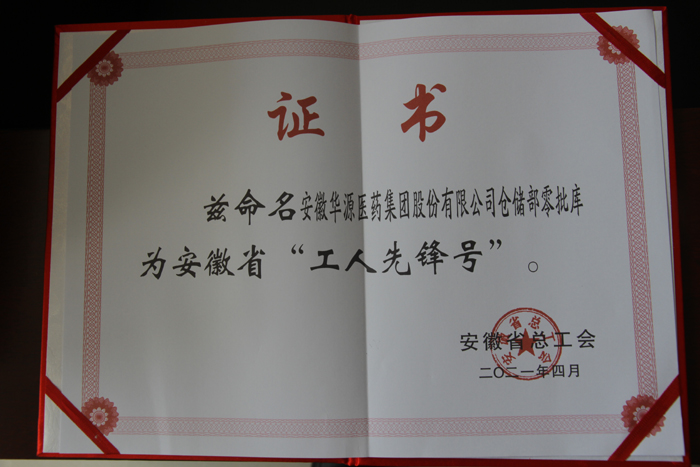 证书
兹命名安徽华源医药集团股份有限公司仓储部零批库
为安徽省“工人先锋号”。
安徽省总工会
二〇二一年四月
安徽省总工会